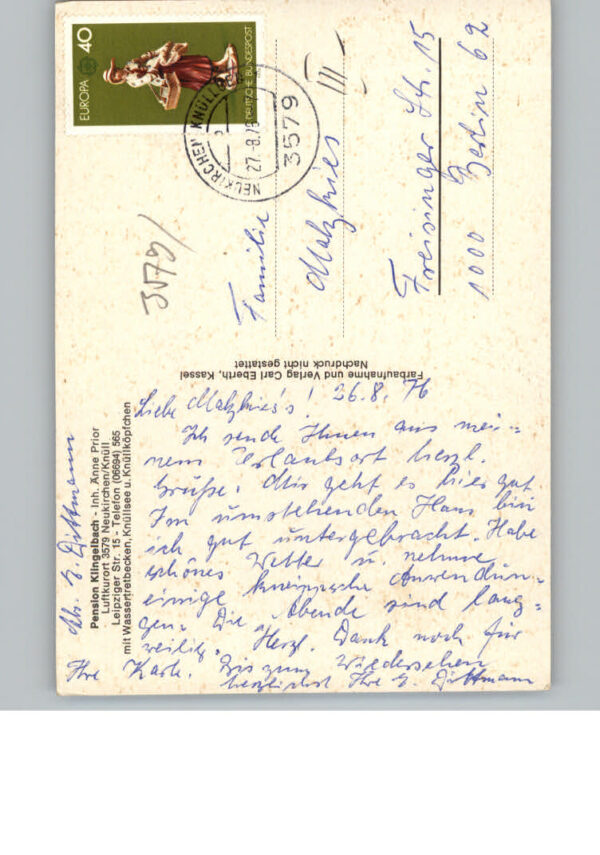 EUROPA 40
DEUTSCHE BUNDESPOST
NEUKIRCHEN KNÜLLGEB
27.-8.76
3579
3579/
Familie
Matzkies III
Freisinger Str. 15
1000 Berlin 62
Farbaufnahme und Verlag Carl Eberth, Kassel
Nachdruck nicht gestattet
Abs. E. Dittmann
Pension Klingelbach - Inh. Änne Prior
Luftkurort 3579 Neukirchen/Knüll
Leipziger Str. 15 - Telefon (06694) 565
mit Wassertretbecken, Knüllsee u. Knüllköpfchen
Liebe Matzkies's! 26.8.76
Ich sende Ihnen aus mei-
nem Urlaubsort herzl.
Grüße. Mir geht es hier gut.
Im umstehenden Haus bin
ich gut untergebracht. Habe
schönes Wetter u. nehme
einige kneippsche Anwendun-
gen. Die Abende sind lang-
weilig. Herzl. Dank noch für
Ihre Karte. Bis zum Wiedersehen
herzlichst Ihre E. Dittmann